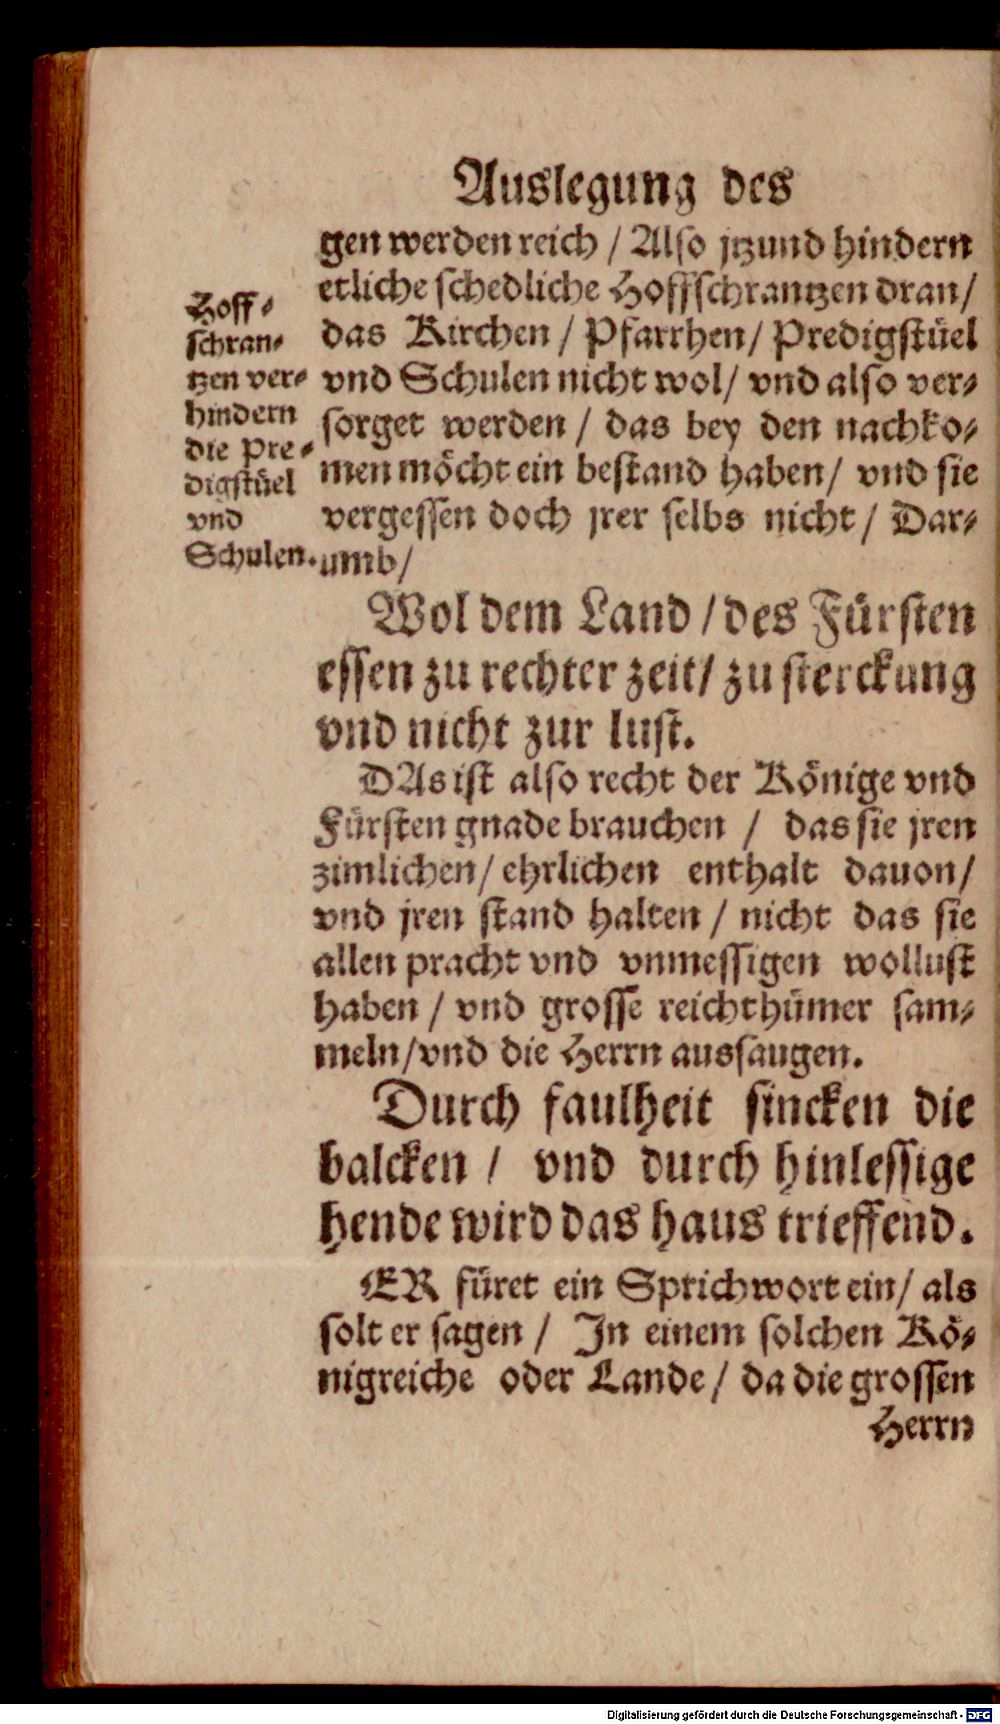 Auslegung des
gen werden reich / Also jtzund hindern
etliche schedliche Hoffschrantzen dran /
das Kirchen / Pfarrhen / Predigstüel
vnd Schulen nicht wol / vnd also ver⸗
sorget werden / das bey den nachko⸗
men möcht ein bestand haben / vnd sie
vergessen doch jrer selbs nicht / Dar⸗
umb /
Hoff⸗
schran⸗
tzen ver⸗
hindern
die Pre⸗
digstüel
vnd
Schulen.
Wol dem Land / des Fürsten
essen zu rechter zeit / zu sterckung
vnd nicht zur lust.
DAs ist also recht der Könige vnd
Fürsten gnade brauchen / das sie jren
zimlichen / ehrlichen enthalt dauon /
vnd jren stand halten / nicht das sie
allen pracht vnd vnmessigen wollust
haben / vnd grosse reichthümer sam⸗
meln / vnd die Herrn aussaugen.
Durch faulheit sincken die
balcken / vnd durch hinlessige
hende wird das haus trieffend.
ER füret ein Sprichwort ein / als
solt er sagen / In einem solchen Kö⸗
nigreiche oder Lande / da die grossen
Herrn
Digitalisierung gefördert durch die Deutsche Forschungsgemeinschaft - DFG